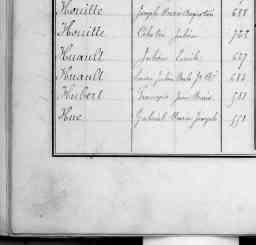 Houitte Joseph Marie Augustin 658
Houitte Célestin Julien 762
Huault Julien Emile 627
Huault Julien Marie Jh Bte 683
Hubert François Jean Marie 511
Hue Gabriel Marie Joseph 551